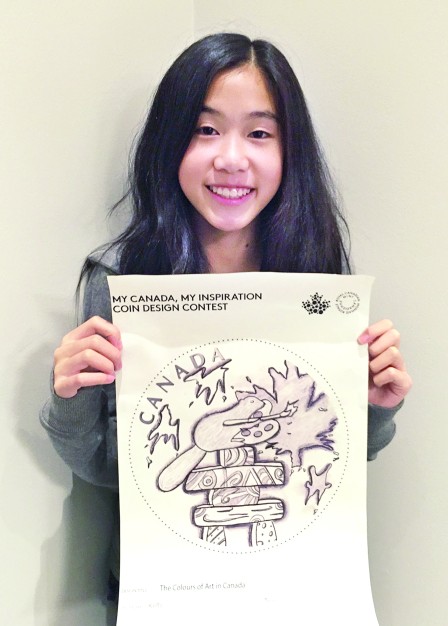 MY CANADA, MY INSPIRATION
COIN DESIGN CONTEST
CANADA
The Colours of Art in Canada